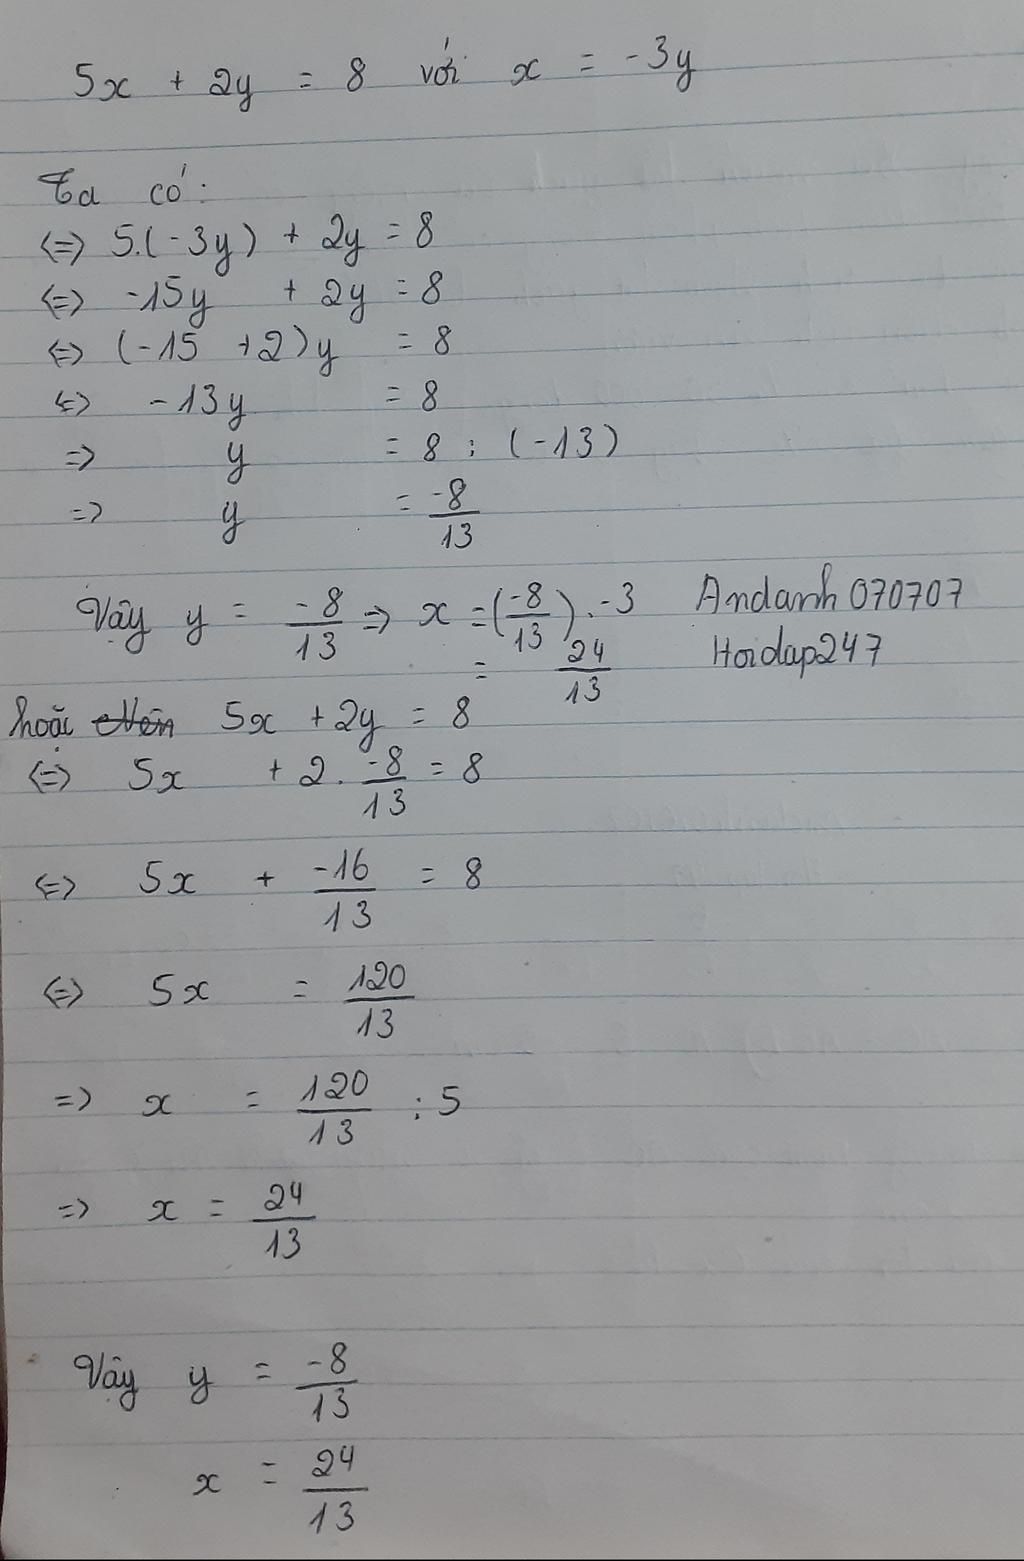 5x + 2y = 8 với x = -3y
Ta có:
<=> 5.(-3y) + 2y = 8
<=> -15y + 2y = 8
<=> (-15 +2)y = 8
<=> -13y = 8
=> y = 8 : (-13)
=> y = -8/13
Vậy y = -8/13 => x = (-8/13) . -3
= 24/13
Andanh070707
Hoidap247
hoặc Nên 5x + 2y = 8
<=> 5x + 2. -8/13 = 8
<=> 5x + -16/13 = 8
<=> 5x = 120/13
=> x = 120/13 : 5
=> x = 24/13
Vậy y = -8/13
x = 24/13